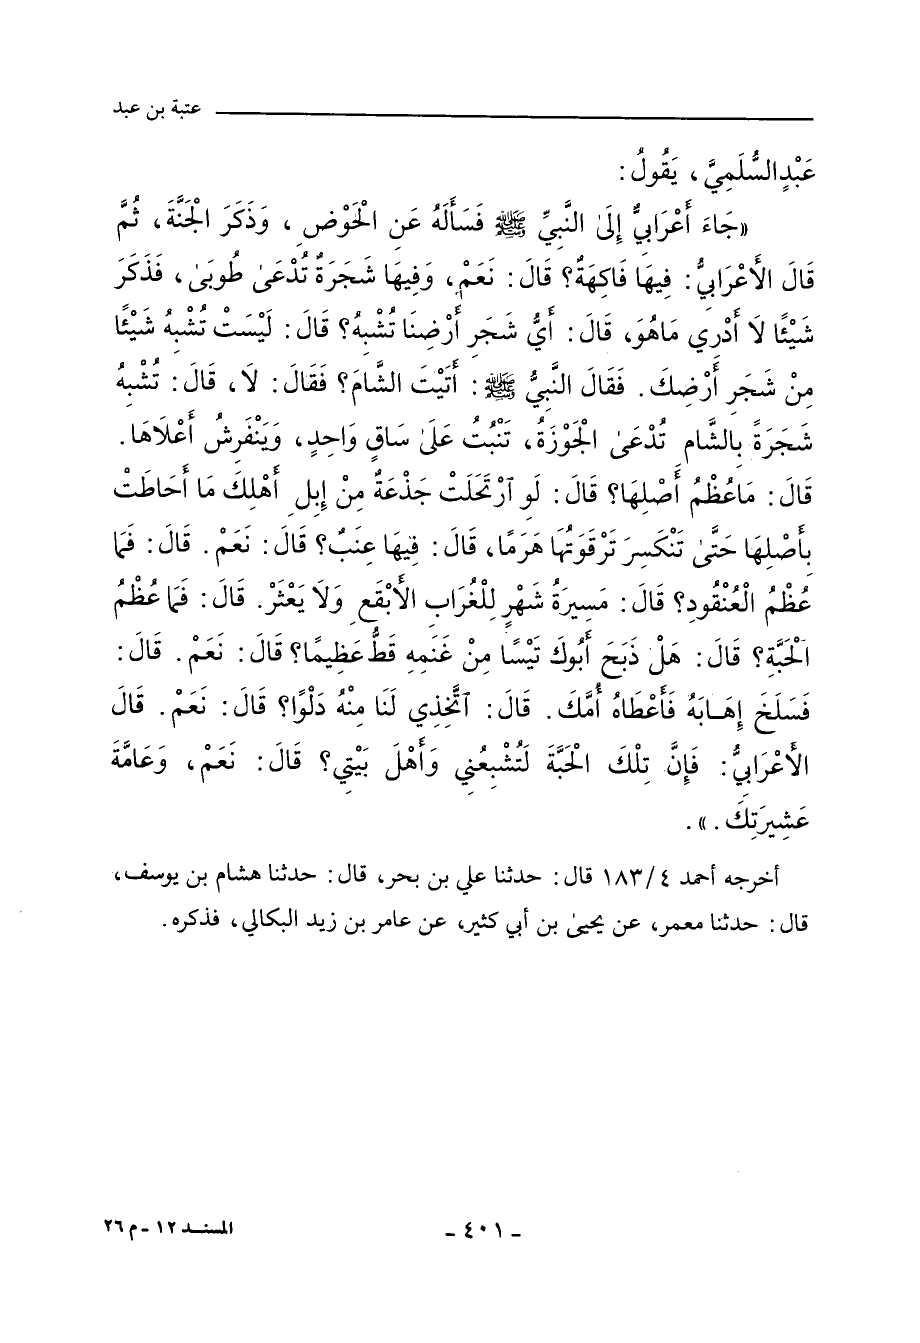 عتبة بن عبد
عَبْدٍالسُّلَمِيَّ ، يَقُولُ :
«جَاءَ أَعْرَابِيٌّ إِلَىٰ النَّبِيِّ ﷺ فَسَأَلَهُ عَنِ الْحَوْضِ ، وَذَكَرَ الْجَنَّةَ، ثُمَّ
قَالَ الأَعْرَابِيُّ : فِيهَا فَاكِهَةٌ؟ قَالَ : نَعَمْ، وَفِيهَا شَجَرَةٌ تُدْعَىٰ طُوبَىٰ ، فَذَكَرَ
شَيْئًا لَا أَدْرِي مَاهُوَ، قَالَ : أَيُّ شَجَرِ أَرْضِنَا تُشْبِهُ؟ قَالَ : لَيْسَتْ تُشْبِهُ شَيْئًا
مِنْ شَجَرِ أَرْضِكَ. فَقَالَ النَّبِيُّ ﷺ : أَتَيْتَ الشَّامَ؟ فَقَالَ : لَا، قَالَ : تُشْبِهُ
شَجَرَةً بِالشَّامِ تُدْعَىٰ الْجَوْزَةُ، تَنْبُتُ عَلَىٰ سَاقٍ وَاحِدٍ، وَيَنْفَرِشُ أَعْلَاهَا.
قَالَ : مَاعُظْمُ أَصْلِهَا؟ قَالَ : لَوِ ٱرْتَحَلَتْ جَذْعَةٌ مِنْ إِبِلِ أَهْلِكَ مَا أَحَاطَتْ
بِأَصْلِهَا حَتَّىٰ تَنْكَسِرَ تَرْقُوَتُهَا هَرَمًا، قَالَ : فِيهَا عِنَبٌ؟ قَالَ : نَعَمْ. قَالَ : فَمَا
عُظْمُ الْعُنْقُودِ؟ قَالَ : مَسِيرَةُ شَهْرٍ لِلْغُرَابِ الأَبْقَعِ وَلَا يَعْثَرُ. قَالَ : فَمَا عُظْمُ
الْحَبَّةِ؟ قَالَ : هَلْ ذَبَحَ أَبُوكَ تَيْسًا مِنْ غَنَمِهِ قَطُّ عَظِيمًا؟ قَالَ : نَعَمْ. قَالَ :
فَسَلَخَ إِهَابَهُ فَأَعْطَاهُ أُمَّكَ. قَالَ : ٱتَّخِذِي لَنَا مِنْهُ دَلْوًا؟ قَالَ : نَعَمْ. قَالَ
الأَعْرَابِيُّ : فَإِنَّ تِلْكَ الْحَبَّةَ لَتُشْبِعُنِي وَأَهْلَ بَيْتِي؟ قَالَ : نَعَمْ، وَعَامَّةَ
عَشِيرَتِكَ .» .
أخرجه أحمد ١٨٣/٤ قال : حدثنا علي بن بحر، قال : حدثنا هشام بن يوسف،
قال : حدثنا معمر، عن يحيىٰ بن أبي كثير، عن عامر بن زيد البكالي، فذكره.
- ٤٠١ -
المسند ١٢ - م ٢٦